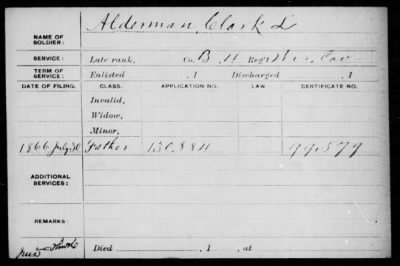 Alderman, Clark L
NAME OF SOLDIER:
SERVICE: Late rank, Co. B, 4 Reg't Wis. Cav
TERM OF SERVICE: Enlisted , 1 Discharged , 1
DATE OF FILING. CLASS. APPLICATION NO. LAW. CERTIFICATE NO.
Invalid,
Widow,
Minor,
1866 July 30 Father 130,884
ADDITIONAL SERVICES:
REMARKS:
Died , 1 , at